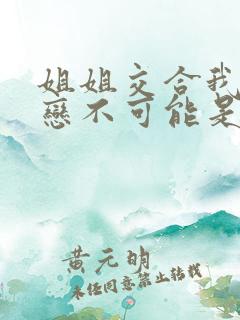 姐姐交合我
戀不可能是
黄元明
未经同意禁止转载